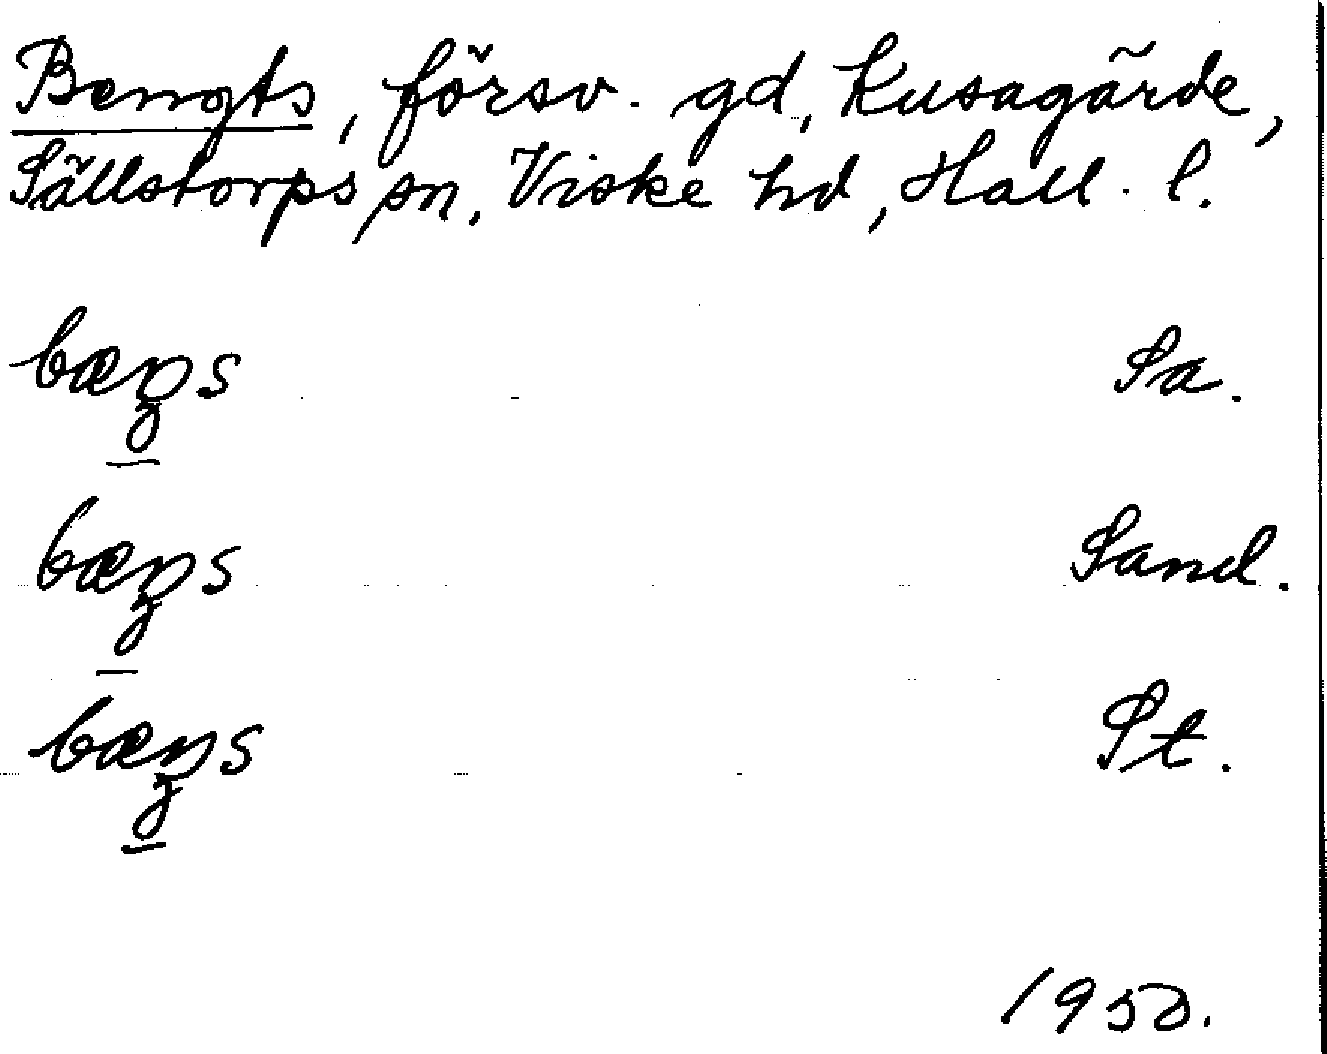 Bengts, försv. gd, Kusagärde,
Sällstorps sn, Viske hd, Hall. l.
bæŋs Sa.
bæŋs Sand.
bæŋs St.
1950.